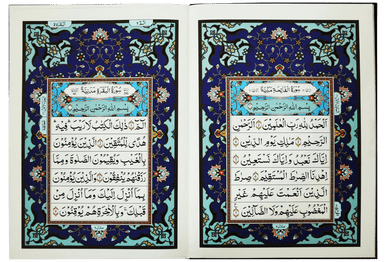 سورة الفاتحة مكية
بسم الله الرحمن الرحيم
الحمد لله رب العلمين الرحمن
الرحيم ملك يوم الدين
إياك نعبد وإياك نستعين
إهدنا الصراط المستقيم صراط
الذين أنعمت عليهم غير
المغضوب عليهم ولا الضالين
سورة البقرة مدنية
بسم الله الرحمن الرحيم
الم ذلك الكتب لا ريب فيه
هدى للمتقين الذين يؤمنون
بالغيب ويقيمون الصلوة ومما
رزقنهم ينفقون والذين يؤمنون
بما أنزل إليك وما أنزل من
قبلك وبالآخرة هم يوقنون